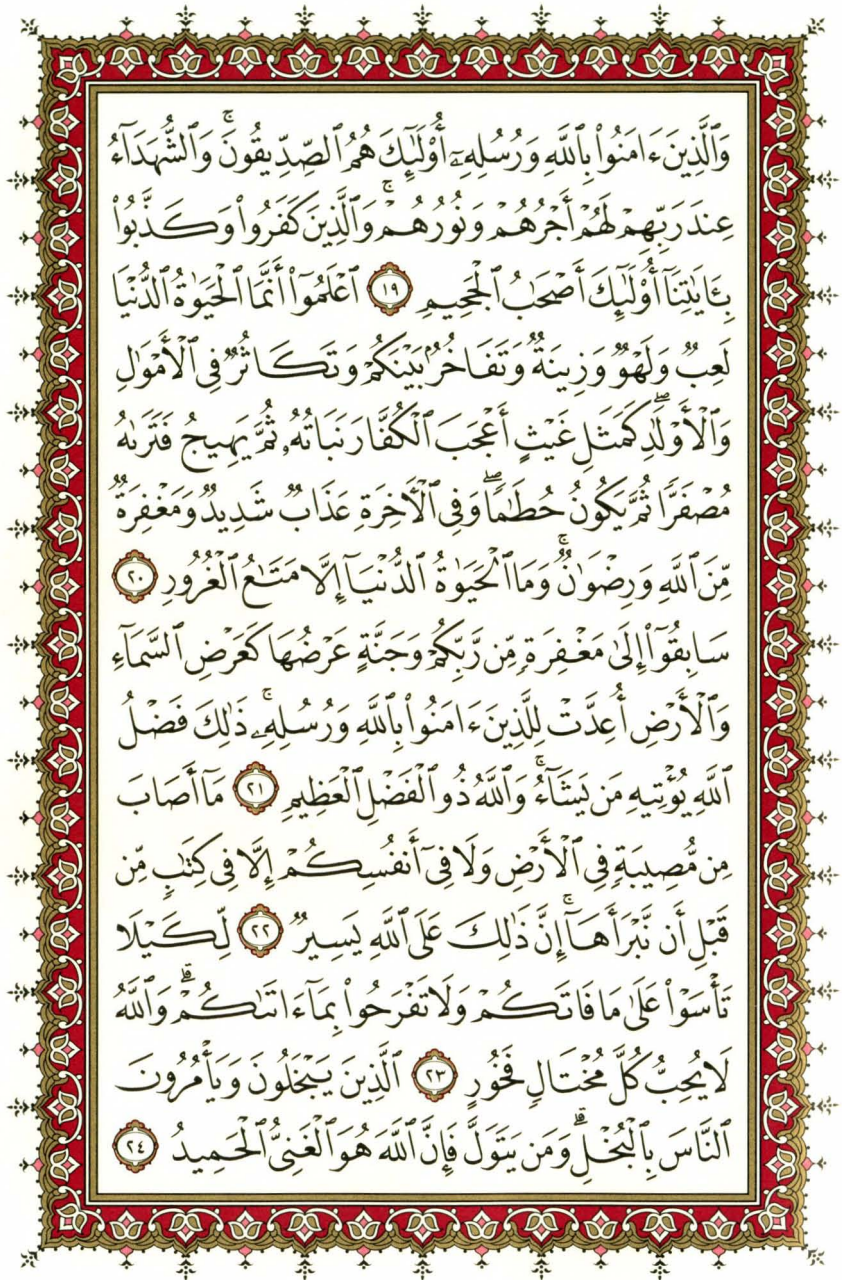 وَٱلَّذِينَ ءَامَنُوا۟ بِٱللَّهِ وَرُسُلِهِۦٓ أُو۟لَـٰٓئِكَ هُمُ ٱلصِّدِّيقُونَ ۖ وَٱلشُّهَدَآءُ
عِندَ رَبِّهِمْ لَهُمْ أَجْرُهُمْ وَنُورُهُمْ ۖ وَٱلَّذِينَ كَفَرُوا۟ وَكَذَّبُوا۟
بِـَٔايَـٰتِنَآ أُو۟لَـٰٓئِكَ أَصْحَـٰبُ ٱلْجَحِيمِ ١٩ ٱعْلَمُوٓا۟ أَنَّمَا ٱلْحَيَوٰةُ ٱلدُّنْيَا
لَعِبٌ وَلَهْوٌ وَزِينَةٌ وَتَفَاخُرٌۢ بَيْنَكُمْ وَتَكَاثُرٌ فِى ٱلْأَمْوَٰلِ
وَٱلْأَوْلَـٰدِ ۖ كَمَثَلِ غَيْثٍ أَعْجَبَ ٱلْكُفَّارَ نَبَاتُهُۥ ثُمَّ يَهِيجُ فَتَرَىٰهُ
مُصْفَرًّا ثُمَّ يَكُونُ حُطَـٰمًا ۖ وَفِى ٱلْـَٔاخِرَةِ عَذَابٌ شَدِيدٌ وَمَغْفِرَةٌ
مِّنَ ٱللَّهِ وَرِضْوَٰنٌ ۚ وَمَا ٱلْحَيَوٰةُ ٱلدُّنْيَآ إِلَّا مَتَـٰعُ ٱلْغُرُورِ ٢٠
سَابِقُوٓا۟ إِلَىٰ مَغْفِرَةٍ مِّن رَّبِّكُمْ وَجَنَّةٍ عَرْضُهَا كَعَرْضِ ٱلسَّمَآءِ
وَٱلْأَرْضِ أُعِدَّتْ لِلَّذِينَ ءَامَنُوا۟ بِٱللَّهِ وَرُسُلِهِۦ ۚ ذَٰلِكَ فَضْلُ
ٱللَّهِ يُؤْتِيهِ مَن يَشَآءُ ۚ وَٱللَّهُ ذُو ٱلْفَضْلِ ٱلْعَظِيمِ ٢١ مَآ أَصَابَ
مِن مُّصِيبَةٍ فِى ٱلْأَرْضِ وَلَا فِىٓ أَنفُسِكُمْ إِلَّا فِى كِتَـٰبٍ مِّن
قَبْلِ أَن نَّبْرَأَهَآ ۚ إِنَّ ذَٰلِكَ عَلَى ٱللَّهِ يَسِيرٌ ٢٢ لِّكَيْلَا
تَأْسَوْا۟ عَلَىٰ مَا فَاتَكُمْ وَلَا تَفْرَحُوا۟ بِمَآ ءَاتَىٰكُمْ ۗ وَٱللَّهُ
لَا يُحِبُّ كُلَّ مُخْتَالٍ فَخُورٍ ٢٣ ٱلَّذِينَ يَبْخَلُونَ وَيَأْمُرُونَ
ٱلنَّاسَ بِٱلْبُخْلِ ۗ وَمَن يَتَوَلَّ فَإِنَّ ٱللَّهَ هُوَ ٱلْغَنِىُّ ٱلْحَمِيدُ ٢٤